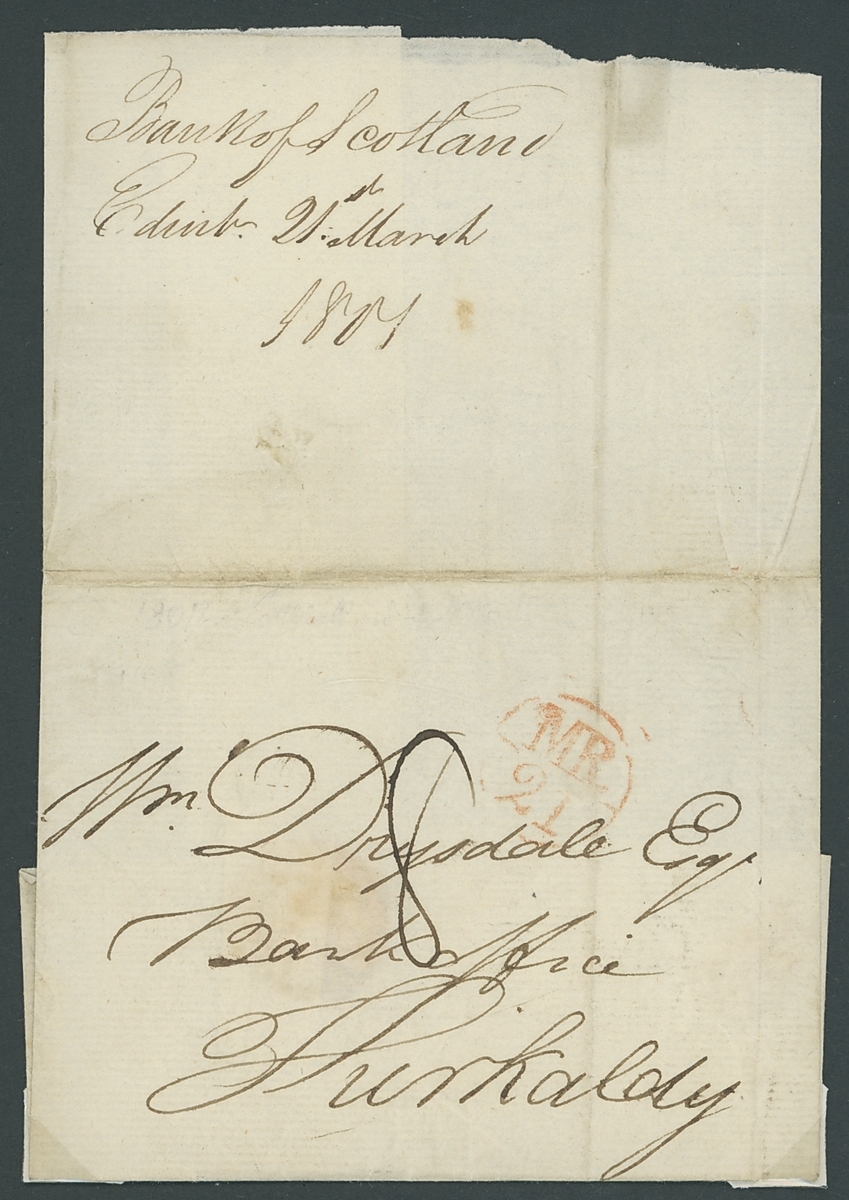 Bank of Scotland
Edinbr. 21st March
1801
MR
21
8
Wm Drysdale Esqr.
Bank office
Kirkaldy